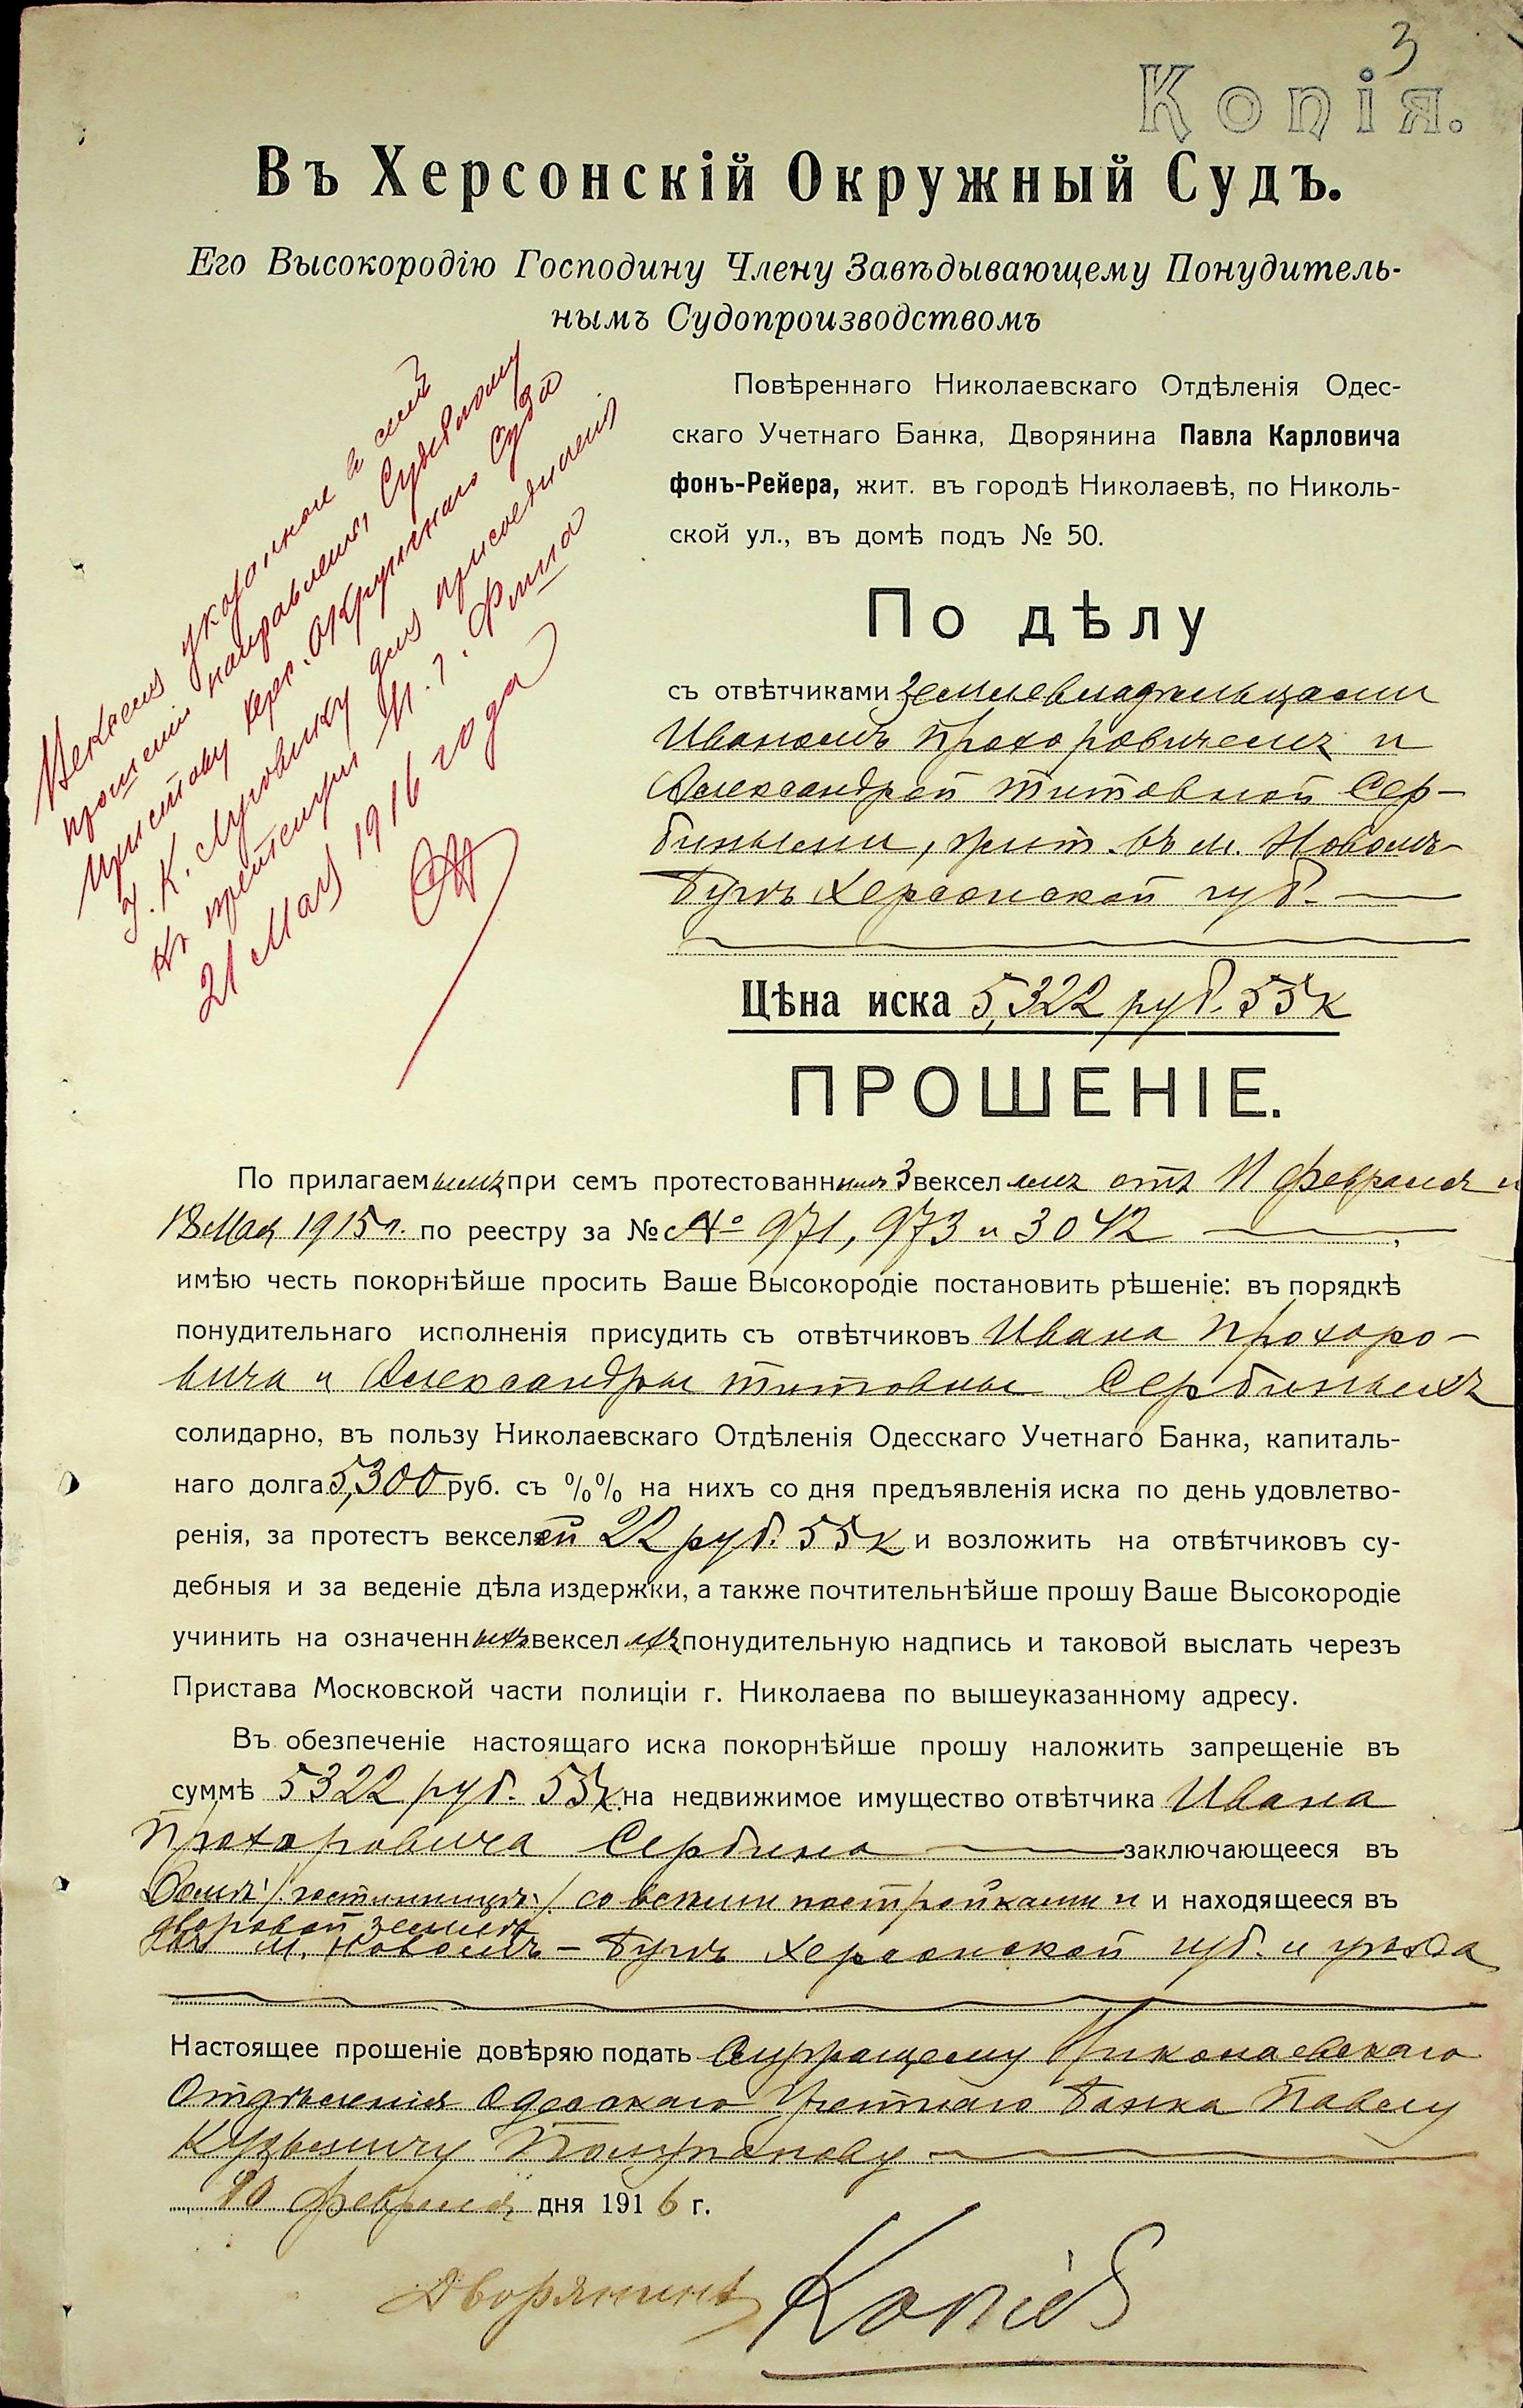 3
Копія.
Въ Херсонскій Окружный Судъ.
Его Высокородію Господину Члену Завѣдывающему Понудитель-
нымъ Судопроизводствомъ
Повѣреннаго Николаевскаго Отдѣленія Одес-
скаго Учетнаго Банка, Дворянина Павла Карловича
фонъ-Рейера, жит. въ городѣ Николаевѣ, по Николь-
ской ул., въ домѣ подъ № 50.
Векселя указанные въ семъ
прошеніи направлены Судебному
Приставу Херс. Окружнаго Суда
К. Луговику для присоединенія
къ претензіи М. г. Финна
21 Мая 1916 года
По дѣлу
съ отвѣтчиками землевладѣльцами
Иваномъ Прохоровичемъ и
Александрой Титовной Сер-
биными, жит. въ м. Новомъ-
Бугѣ Херсонской губ.
Цѣна иска 5,322 руб. 55 к
ПРОШЕНІЕ.
По прилагаемымъ при семъ протестованнымъ 3 векселямъ отъ 11 февраля и
18 Мая 1915 г. по реестру за № № 971, 973 и 3042,
имѣю честь покорнѣйше просить Ваше Высокородіе постановить рѣшеніе: въ порядкѣ
понудительнаго исполненія присудить съ отвѣтчиковъ Ивана Прохоро-
вича и Александры Титовны Сербиныхъ
солидарно, въ пользу Николаевскаго Отдѣленія Одесскаго Учетнаго Банка, капиталь-
наго долга 5,300 руб. съ %% на нихъ со дня предъявленія иска по день удовлетво-
ренія, за протестъ векселей 22 руб. 55 к и возложить на отвѣтчиковъ су-
дебныя и за веденіе дѣла издержки, а также почтительнѣйше прошу Ваше Высокородіе
учинить на означенныхъ векселяхъ понудительную надпись и таковой выслать черезъ
Пристава Московской части полиціи г. Николаева по вышеуказанному адресу.
Въ обезпеченіе настоящаго иска покорнѣйше прошу наложить запрещеніе въ
суммѣ 5322 руб. 55 к. на недвижимое имущество отвѣтчика Ивана
Прохоровича Сербина заключающееся въ
Домѣ /гостинницѣ/ со всѣми постройками и и находящееся въ
дворовой землѣ
въ м. Новомъ-Бугѣ Херсонской губ. и уѣзда
Настоящее прошеніе довѣряю подать служащему Николаевскаго
Отдѣленія Одесскаго Учетнаго Банка Павлу
Кузьмичу
10 февраля дня 1916 г.
Дворянинъ Копія